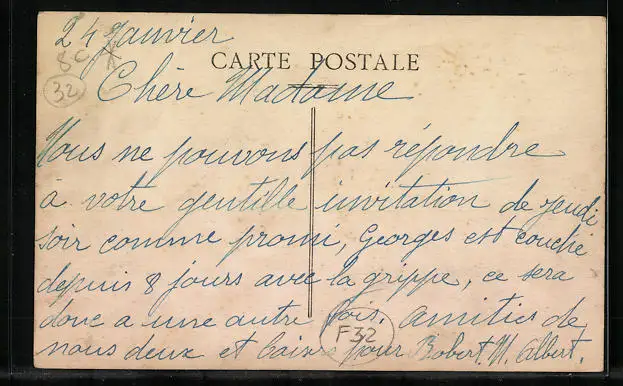 24 Janvier
CARTE POSTALE
80
32
Chère Madame
Nous ne pouvons pas répondre
à votre gentille invitation de jeudi
soir comme promi, Georges est couché
depuis 8 jours avec la grippe, ce sera
donc a une autre fois. amitiés de
F32
nous deux et baisers pour Robert. M. Albert.